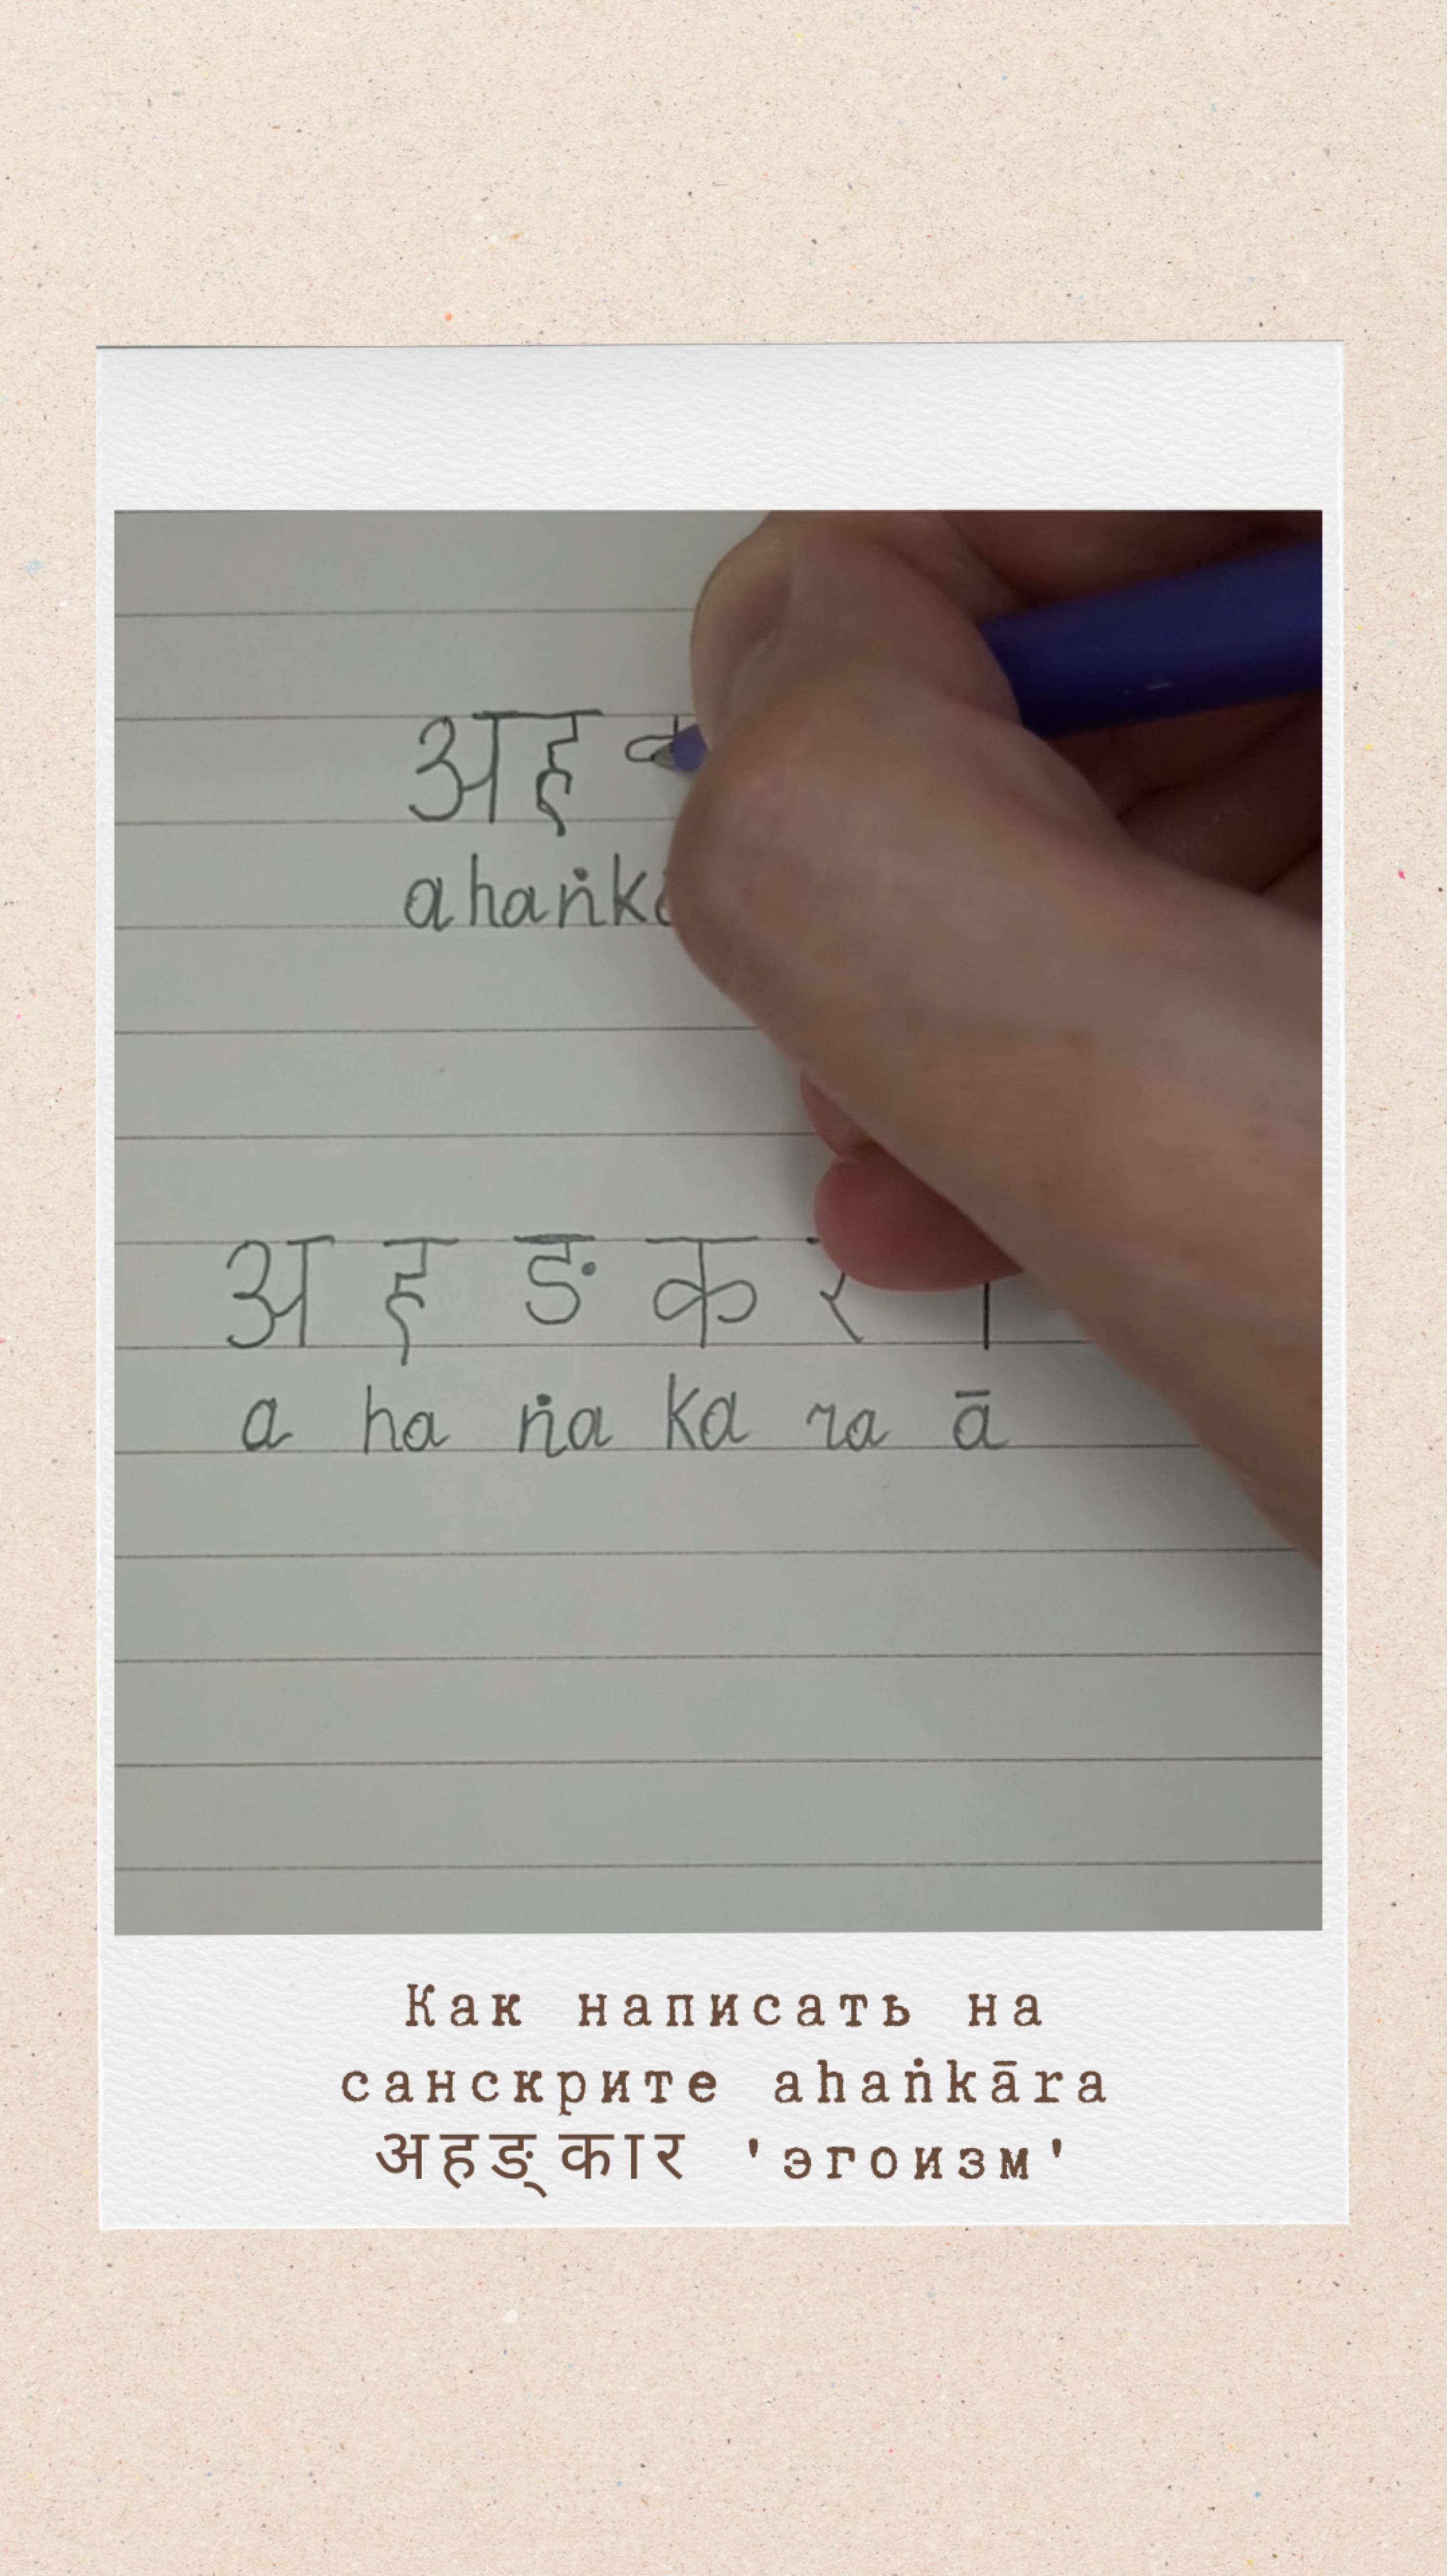 अह
अ ह ङ क र ा
a ha ṅa ka ra ā
Как написать на
санскрите ahaṅkāra
अहङ्कार 'эгоизм'